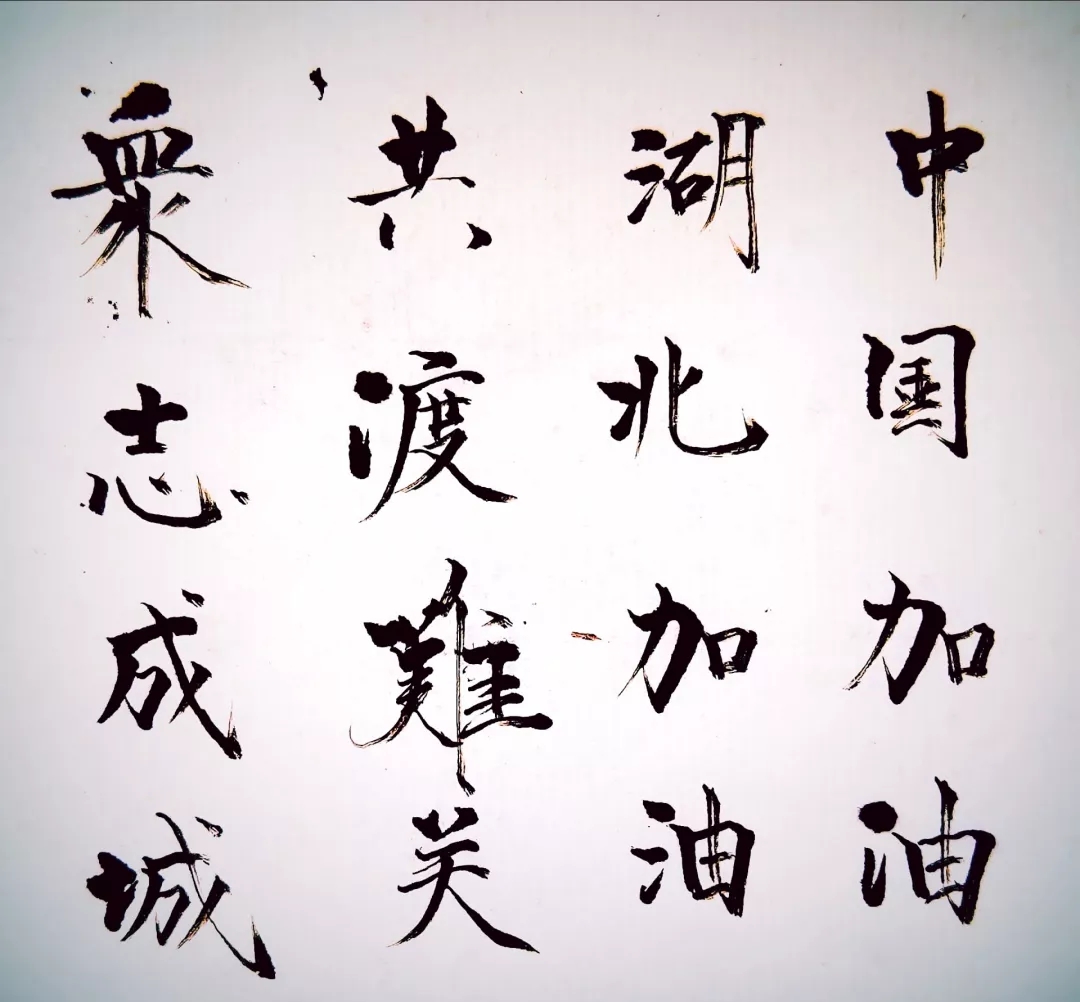 中国加油
湖北加油
共渡難关
衆志成城